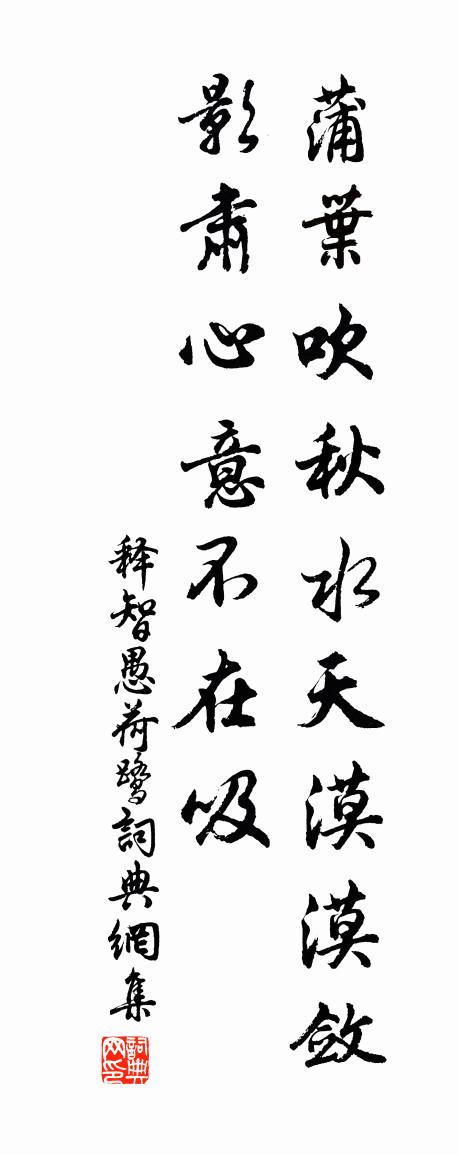 蒲葉吹秋水天漠漠斂
影肅心意不在吸
释智愚荷鹭詞典網集
詞典网印